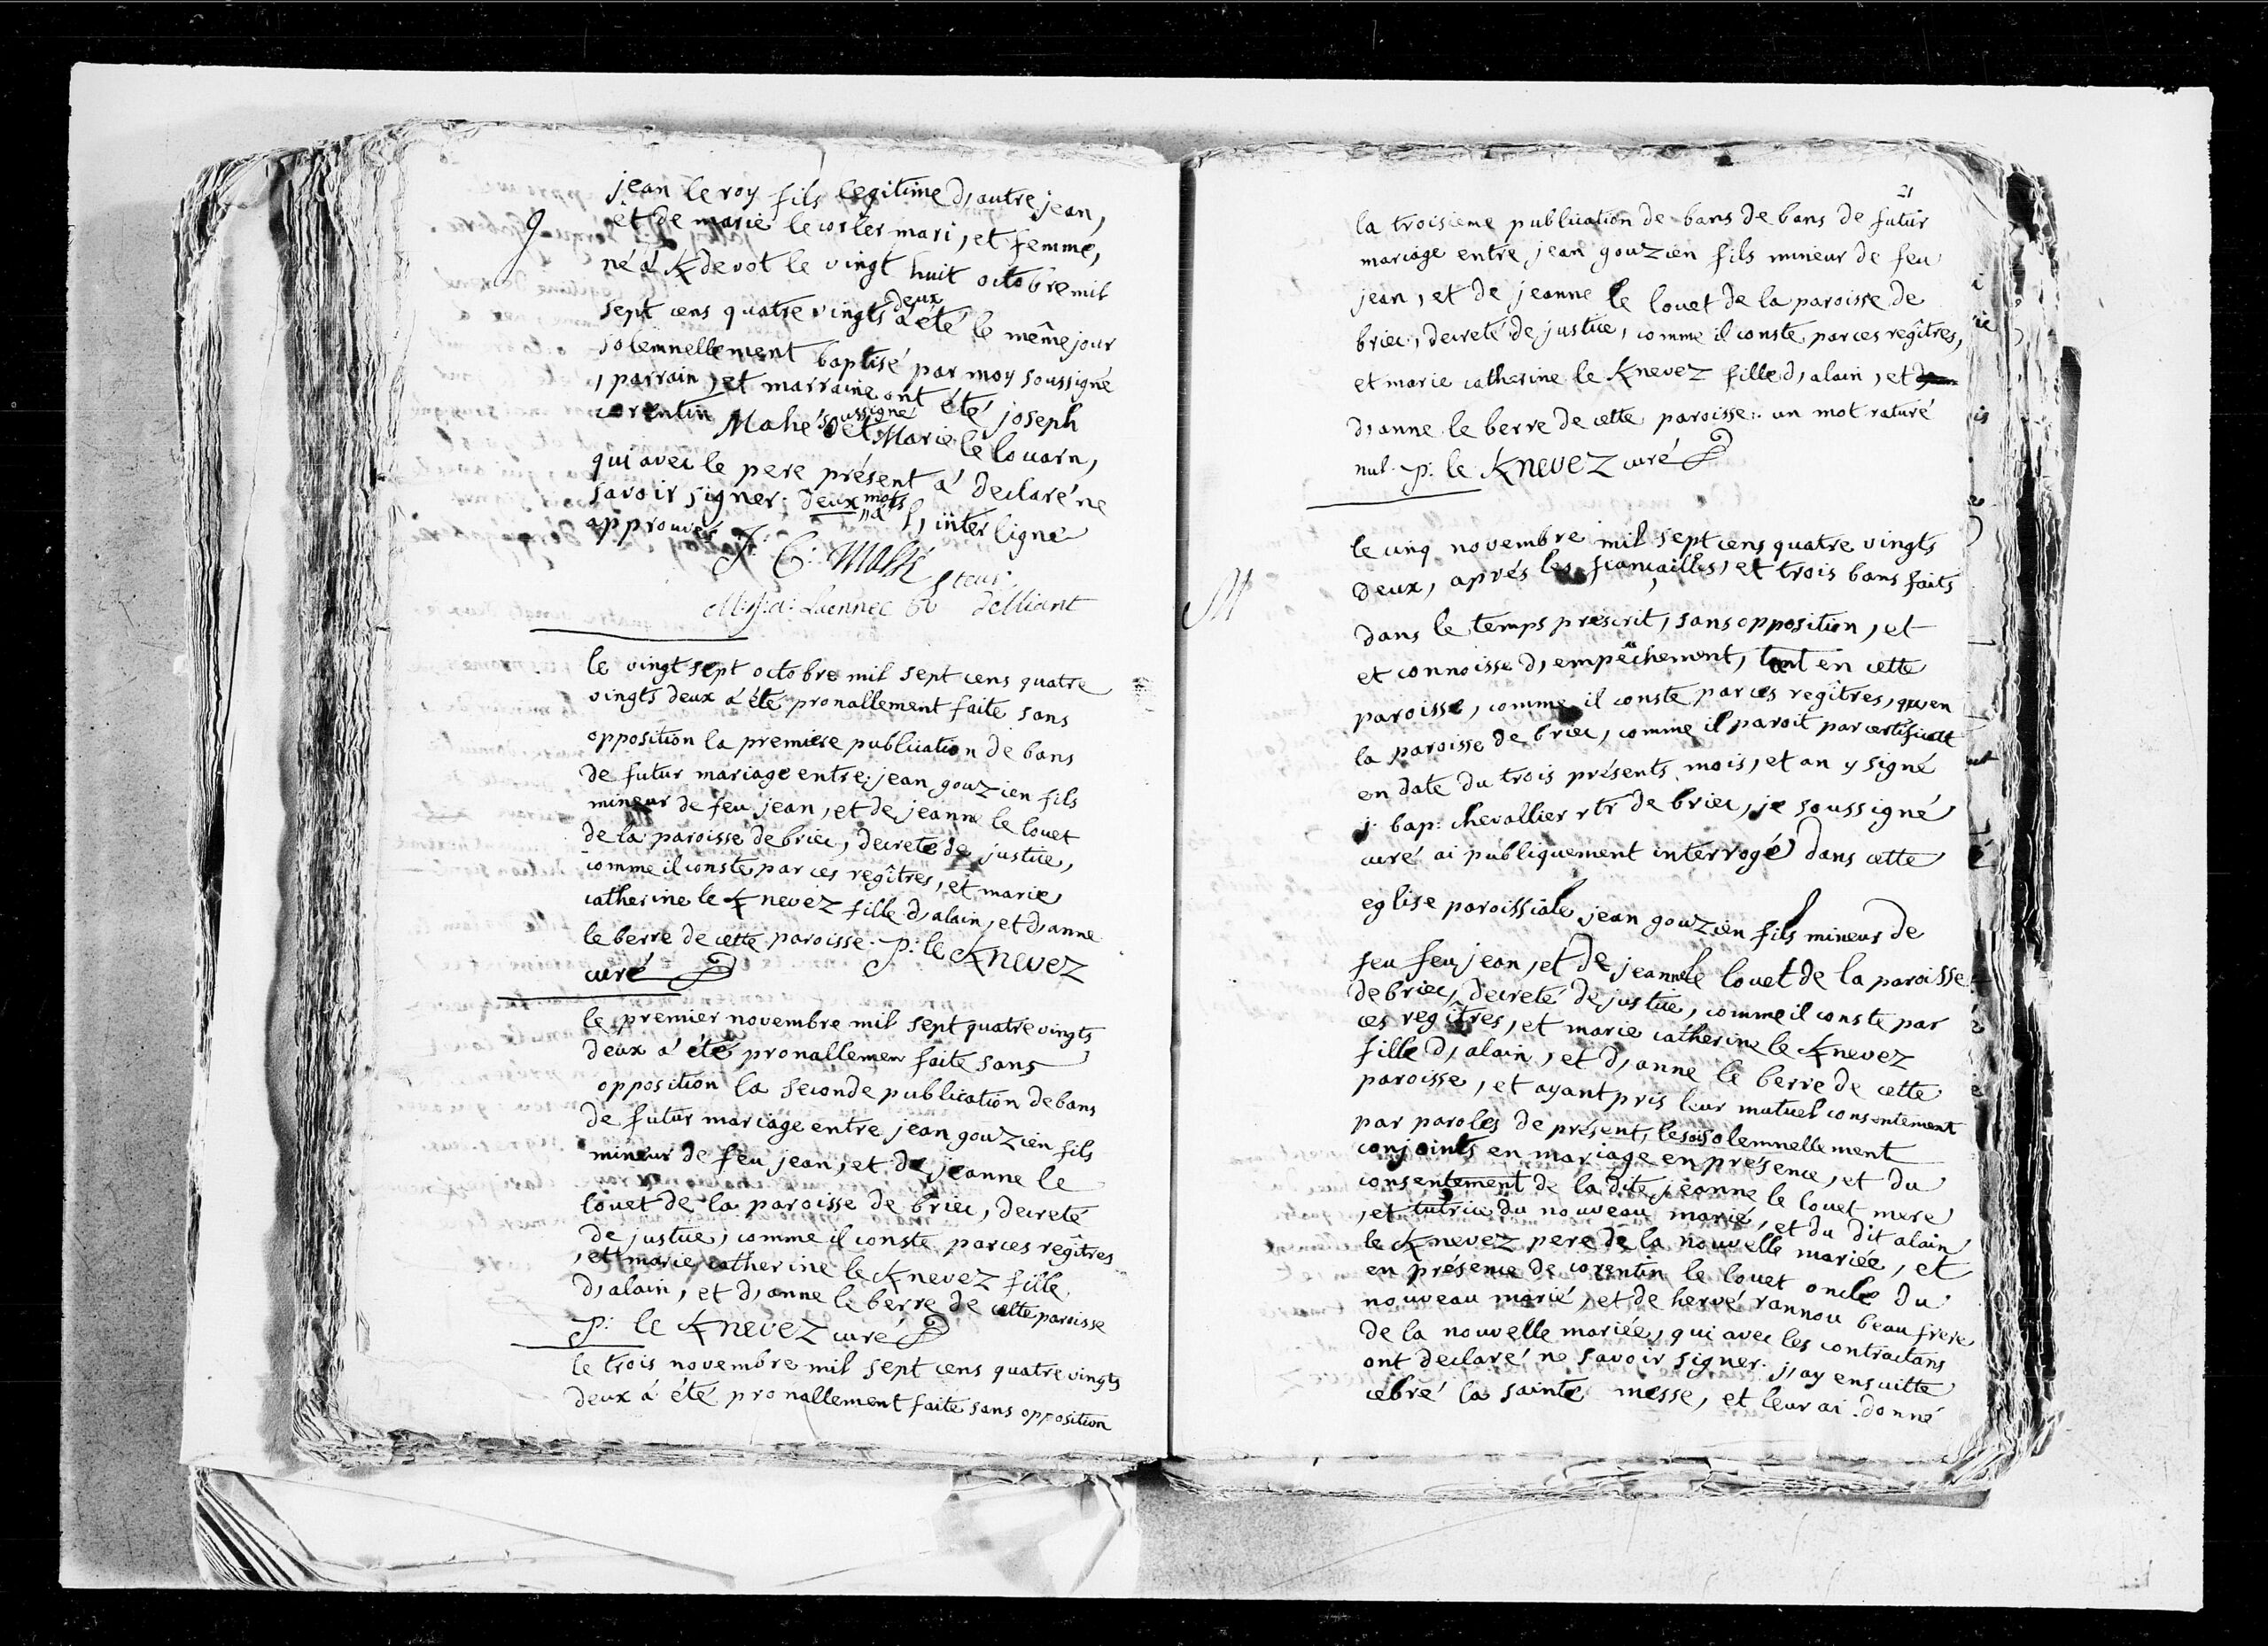 jean le roy fils legitime d, autre jean,
et de marie le corler mari, et femme,
né á Kdevot le vingt huit octobre mil
sept cens quatre vingts deux a été le même jour
solemnellement baptisé par moy soussigné
, parrain, et marraine ont été joseph
corentin Mahé soussigné et Marie le louarn,
qui avec le pere présent á declaré ne
savoir signer. deux mots á l, interligne
approuvés J. C. Mahé
Laennec rteur d'elliant
le vingt sept octobre mil sept cens quatre
vingts deux á été pronallement faite sans
opposition la premiere publication de bans
de futur mariage entre jean gouzien fils
mineur de feu jean, et de jeanne le louet
de la paroisse de briec, decreté de justice,
comme il conste par ces regîtres, et marie
catherine le Knevez fille d, alain, et d, anne
le berre de cette paroisse. p: le Knevez
curé
le premier novembre mil sept quatre vingts
deux á été pronallemen faite sans
opposition la seconde publication de bans
de futur mariage entre jean gouzien fils
mineur de feu jean, et de jeanne le
louet de la paroisse de briec, decreté
de justice, comme il conste par ces regîtres
, et marie catherine le Knevez fille
d, alain, et d, anne le berre de cette paroisse
p: le Knevez curé
le trois novembre mil sept cens quatre vingts
deux á été pronallement faite sans opposition
21
la troisieme publication de bans de bans de futur
mariage entre jean gouzien fils mineur de feu
jean, et de jeanne le louet de la paroisse de
briec, decreté de justice, comme il conste par ces regîtres,
et marie catherine le Knevez fille d, alain, et
d, anne le berre de cette paroisse. un mot raturé
nul. p: le Knevez curé
M
le cinq novembre mil sept cens quatre vingts
deux, aprés les fiancailles, et trois bans faits
dans le temps prescrit, sans opposition, et
et connoisse d, empêchement, tant en cette
paroisse, comme il conste par ces regîtres, qu'en
la paroisse de briec, comme il paroit par certificat
en date du trois présents mois, et an y signé
j. bap: chevallier rtr de briec, je soussigné
curé ai publiquement interrogé dans cette
eglise paroissiale jean gouzien fils mineur de
feu feu jean, et de jeanne le louet de la paroisse
de briec, decreté de justice, comme il conste par
ces regîtres, et marie catherine le Knevez
fille d, alain, et d, anne le berre de cette
paroisse, et ayant pris leur mutuel consentement
par paroles de présent, les ai solemnellement
conjoints en mariage en présence, et du
consentement de la dite jeanne le louet mere
, et tutrice du nouveau marié, et du dit alain
le Knevez pere de la nouvelle mariée, et
en présence de corentin le louet oncle du
nouveau marié, et de hervé rannou beau frere
de la nouvelle mariée, qui avec les contractans
ont declaré ne savoir signer. j, ay ensuitte
cebré la sainte messe, et leur ai donné